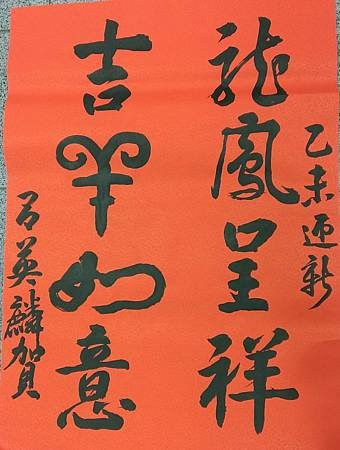 乙未迎新
龍鳳呈祥
吉羊如意
呂英麟賀